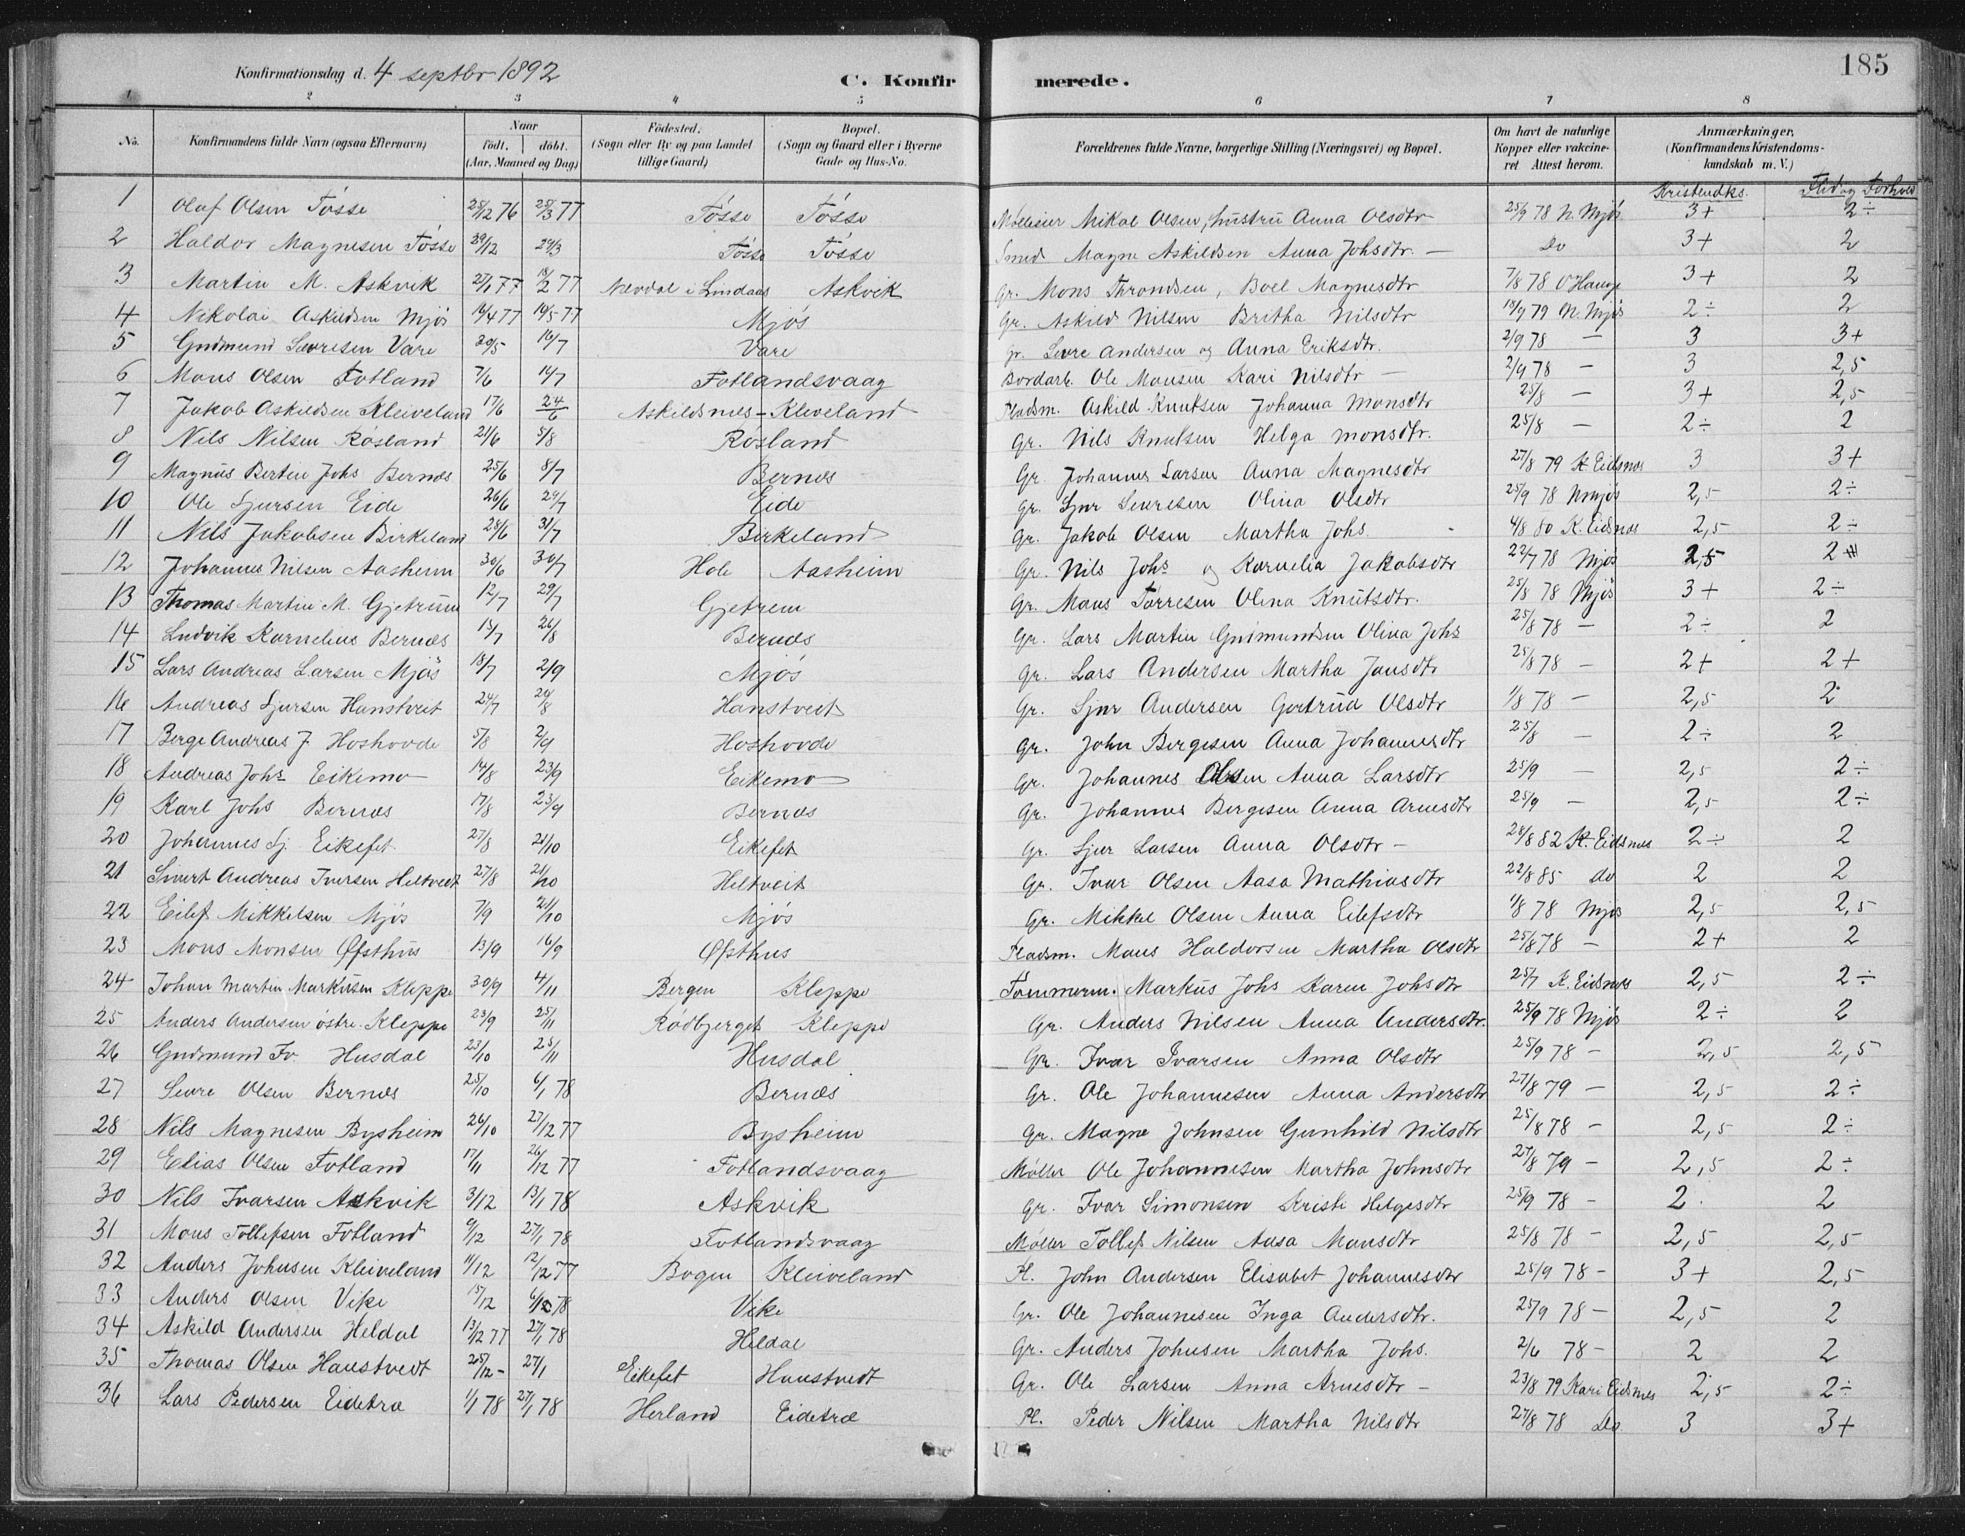 Konfirmationsdag d. 4 septbr 1892 C. Konfirmerede. 185
1 2 3 4 5 6 7 8
No. Konfirmandens fulde Navn (ogsaa Efternavn) Naar født. døbt. (Aar, Maaned og Dag) Födested. (Sogn eller By og paa Landet tillige Gaard) Bopæl. (Sogn og Gaard eller i Byerne Gade og Hus-No. Forældrenes fulde Navne, borgerlige Stilling (Næringsvei) og Bopæl. Om havt de naturlige Kopper eller vakcineret Attest herom. Anmærkninger, (Konfirmandens Kristendomskundskab m. V.)
Kristendks. Flid og Forhold
1 Olaf Olsen Tösse 25/12 76 25/3 77 Tösse Tösse Mölleeier Mikal Olsen, hustru Anna Olsdtr 25/9 78 N. Mjös 3+ 2÷
2 Haldor Magnesen Tösse 29/12 29/3 Tösse Tösse Smed Magne Askildsen Anna Johsdtr. — Do 3+ 2
3 Martin M. Askvik 27/1 77 18/2 77 Nævdal i Lindaas Askvik Gr. Mons Throndsen, Boel Magnesdtr 7/8 78 O Hauge 3+ 2
4 Nikolai Askildsen Mjös 14/4 77 19/5 77 Mjös Gr. Askild Nilsen Britha Nilsdtr 18/9 79 N. Mjös 2÷ 2
5 Gudmund Sevresen Vare 20/5 16/7 Vare Gr. Sevre Andersen og Anna Eriksdtr. 2/9 78 — 3 3+
6 Mons Olsen Fotland 7/6 14/7 Fotlandsvaag Bordarb. Ole Monsen Kari Nilsdtr — 2/9 78 — 3 2,5
7 Jakob Askildsen Kleiveland 17/6 24/6 Askildsnes - Kleveland Pladsm. Askild Knutsen Johanna Monsdtr 25/8 — 3+ 2,5
8 Nils Nilsen Rösland 21/6 5/8 Rosland Gr. Nils Knutsen Helga Monsdtr. 25/8 — 2÷ 2
9 Magnus Berten Johs Bernæs 25/6 8/7 Bernæs Gr. Johannes Larsen Anna Magnesdtr 27/8 79 K. Eidsnes 3 3+
10 Ole Sjursen Eide 26/6 29/7 Eide Gr. Sjur Sevresen Olina Olsdtr 25/9 78 N Mjös 2,5 2÷
11 Nils Jakobsen Birkeland 28/6 31/7 Birkeland Gr. Jakob Olsen Martha Johs 4/8 80 K. Eidsnes 2,5 2÷
12 Johannes Nilsen Aasheim 30/6 30/7 Hole Aasheim Gr. Nils Johs og Kornelia Jakobsdtr 22/7 78 Mjös 2,5 2
13 Thomas Martin M. Gjetrum 12/7 29/7 Gjetrem Gr. Mons Torresen Olina Knutsdtr. 25/8 78 Mjös 3+ 2÷
14 Ludvik Kornelius Bernæs 15/7 26/8 Bernæs Gr. Lars Martin Gudmundsen Olina Johs 25/8 78 — 2÷ 2
15 Lars Andreas Larsen Mjös 18/7 2/9 Mjös Gr. Lars Andersen Martha Jansdtr 25/8 78 — 2+ 2+
16 Andreas Sjursen Hanstveit 24/7 24/8 Hanstveit Gr. Sjur Andersen Gertrud Olsdtr 1/8 78 — 2,5 2
17 Berge Andreas J. Hoshovde 5/8 2/9 Hoshovde Gr. John Bergesen Anna Johannesdtr 25/8 — 2÷ 2
18 Andreas Johs Eikemo 14/8 23/9 Eikemo Gr. Johannes Olsen Anna Larsdtr 25/9 — 2,5 2÷
19 Karl Johs Bernæs 17/8 23/9 Bernæs Gr. Johannes Bergesen Anna Arnesdtr 25/9 — 2,5 2÷
20 Johannes Sj. Eikefet 27/8 21/10 Eikefet Gr. Sjur Larsen Anna Olsdtr — 28/8 82 K. Eidsnes 2÷ 2
21 Sivert Andreas Iversen Heltvedt 27/8 21/10 Heltveit Gr. Ivar Olsen Aasa Mathiasdtr 22/8 85 do 2 2
22 Eilef Mikkelsen Mjös 7/9 21/10 Mjös Gr. Mikkel Olsen Anna Eilefsdtr 1/8 78 Mjös 2,5 2,5
23 Mons Monsen Øfsthus 13/9 16/9 Øfsthus Pladsm. Mons Haldorsen Martha Olsdtr 25/8 78 — 2+ 2
24 Johan Martin Markusen Kleppe 30/9 4/11 Bergen Kleppe Tömmerm. Markus Johs Karen Johsdtr 25/7 K. Eidsnes 2,5 2÷
25 Anders Andersen östre Kleppe 23/9 25/11 Rödbjerget Kleppe Gr. Anders Nilsen Anna Andersdtr. 25/9 78 Mjös 2÷ 2
26 Gudmund Iv Husdal 23/10 25/11 Husdal Gr. Ivar Ivarsen Anna Olsdtr 25/9 78 — 2,5 2,5
27 Sevre Olsen Bernæs 25/10 6/1 78 Bernæs Gr. Ole Johannesen Anna Andersdtr 27/8 79 — 2,5 2÷
28 Nils Magnesen Bysheim 26/10 27/12 77 Bysheim Gr. Magne Johnsen Gunhild Nilsdtr 25/8 78 — 2,5 2÷
29 Elias Olsen Fotland 17/11 26/12 77 Fotlandsvaag Möller Ole Johannesen Martha Johnsdtr 27/8 79 — 2,5 2÷
30 Nils Ivarsen Askvik 3/12 13/1 78 Askvik Gr. Ivar Simonsen Kristi Helgesdtr 25/9 78 — 2 2
31 Mons Tollefsen Fotland 9/12 27/1 78 Fotlandsvaag Möller Tollef Nilsen Aasa Monsdtr 25/8 78 — 2,5 2,5
32 Anders Johnsen Kleiveland 11/12 12/12 77 Bogen Kleiveland Pl. John Andersen Elisabet Johannesdtr 25/9 78 — 3+ 2,5
33 Anders Olsen Vike 15/12 78 Vike Gr. Ole Johannesen Inga Andersdtr. 25/9 78 — 2,5 2
34 Askild Andersen Heldal 13/12 77 27/1 78 Heldal Gr. Anders Johnsen Martha Johs. 2/6 78 — 2 2
35 Thomas Olsen Hanstvedt 25/12 - 27/1 Eikefet Hanstvedt Gr. Ole Larsen Anna Arnesdtr — 23/8 79 Kari Eidsnes 2,5 2÷
36 Lars Pedersen Eidetræ 1/1 78 27/1 78 Herland Eidetræ Pl. Peder Nilsen Martha Nilsdtr 27/8 78 Do 3 3+